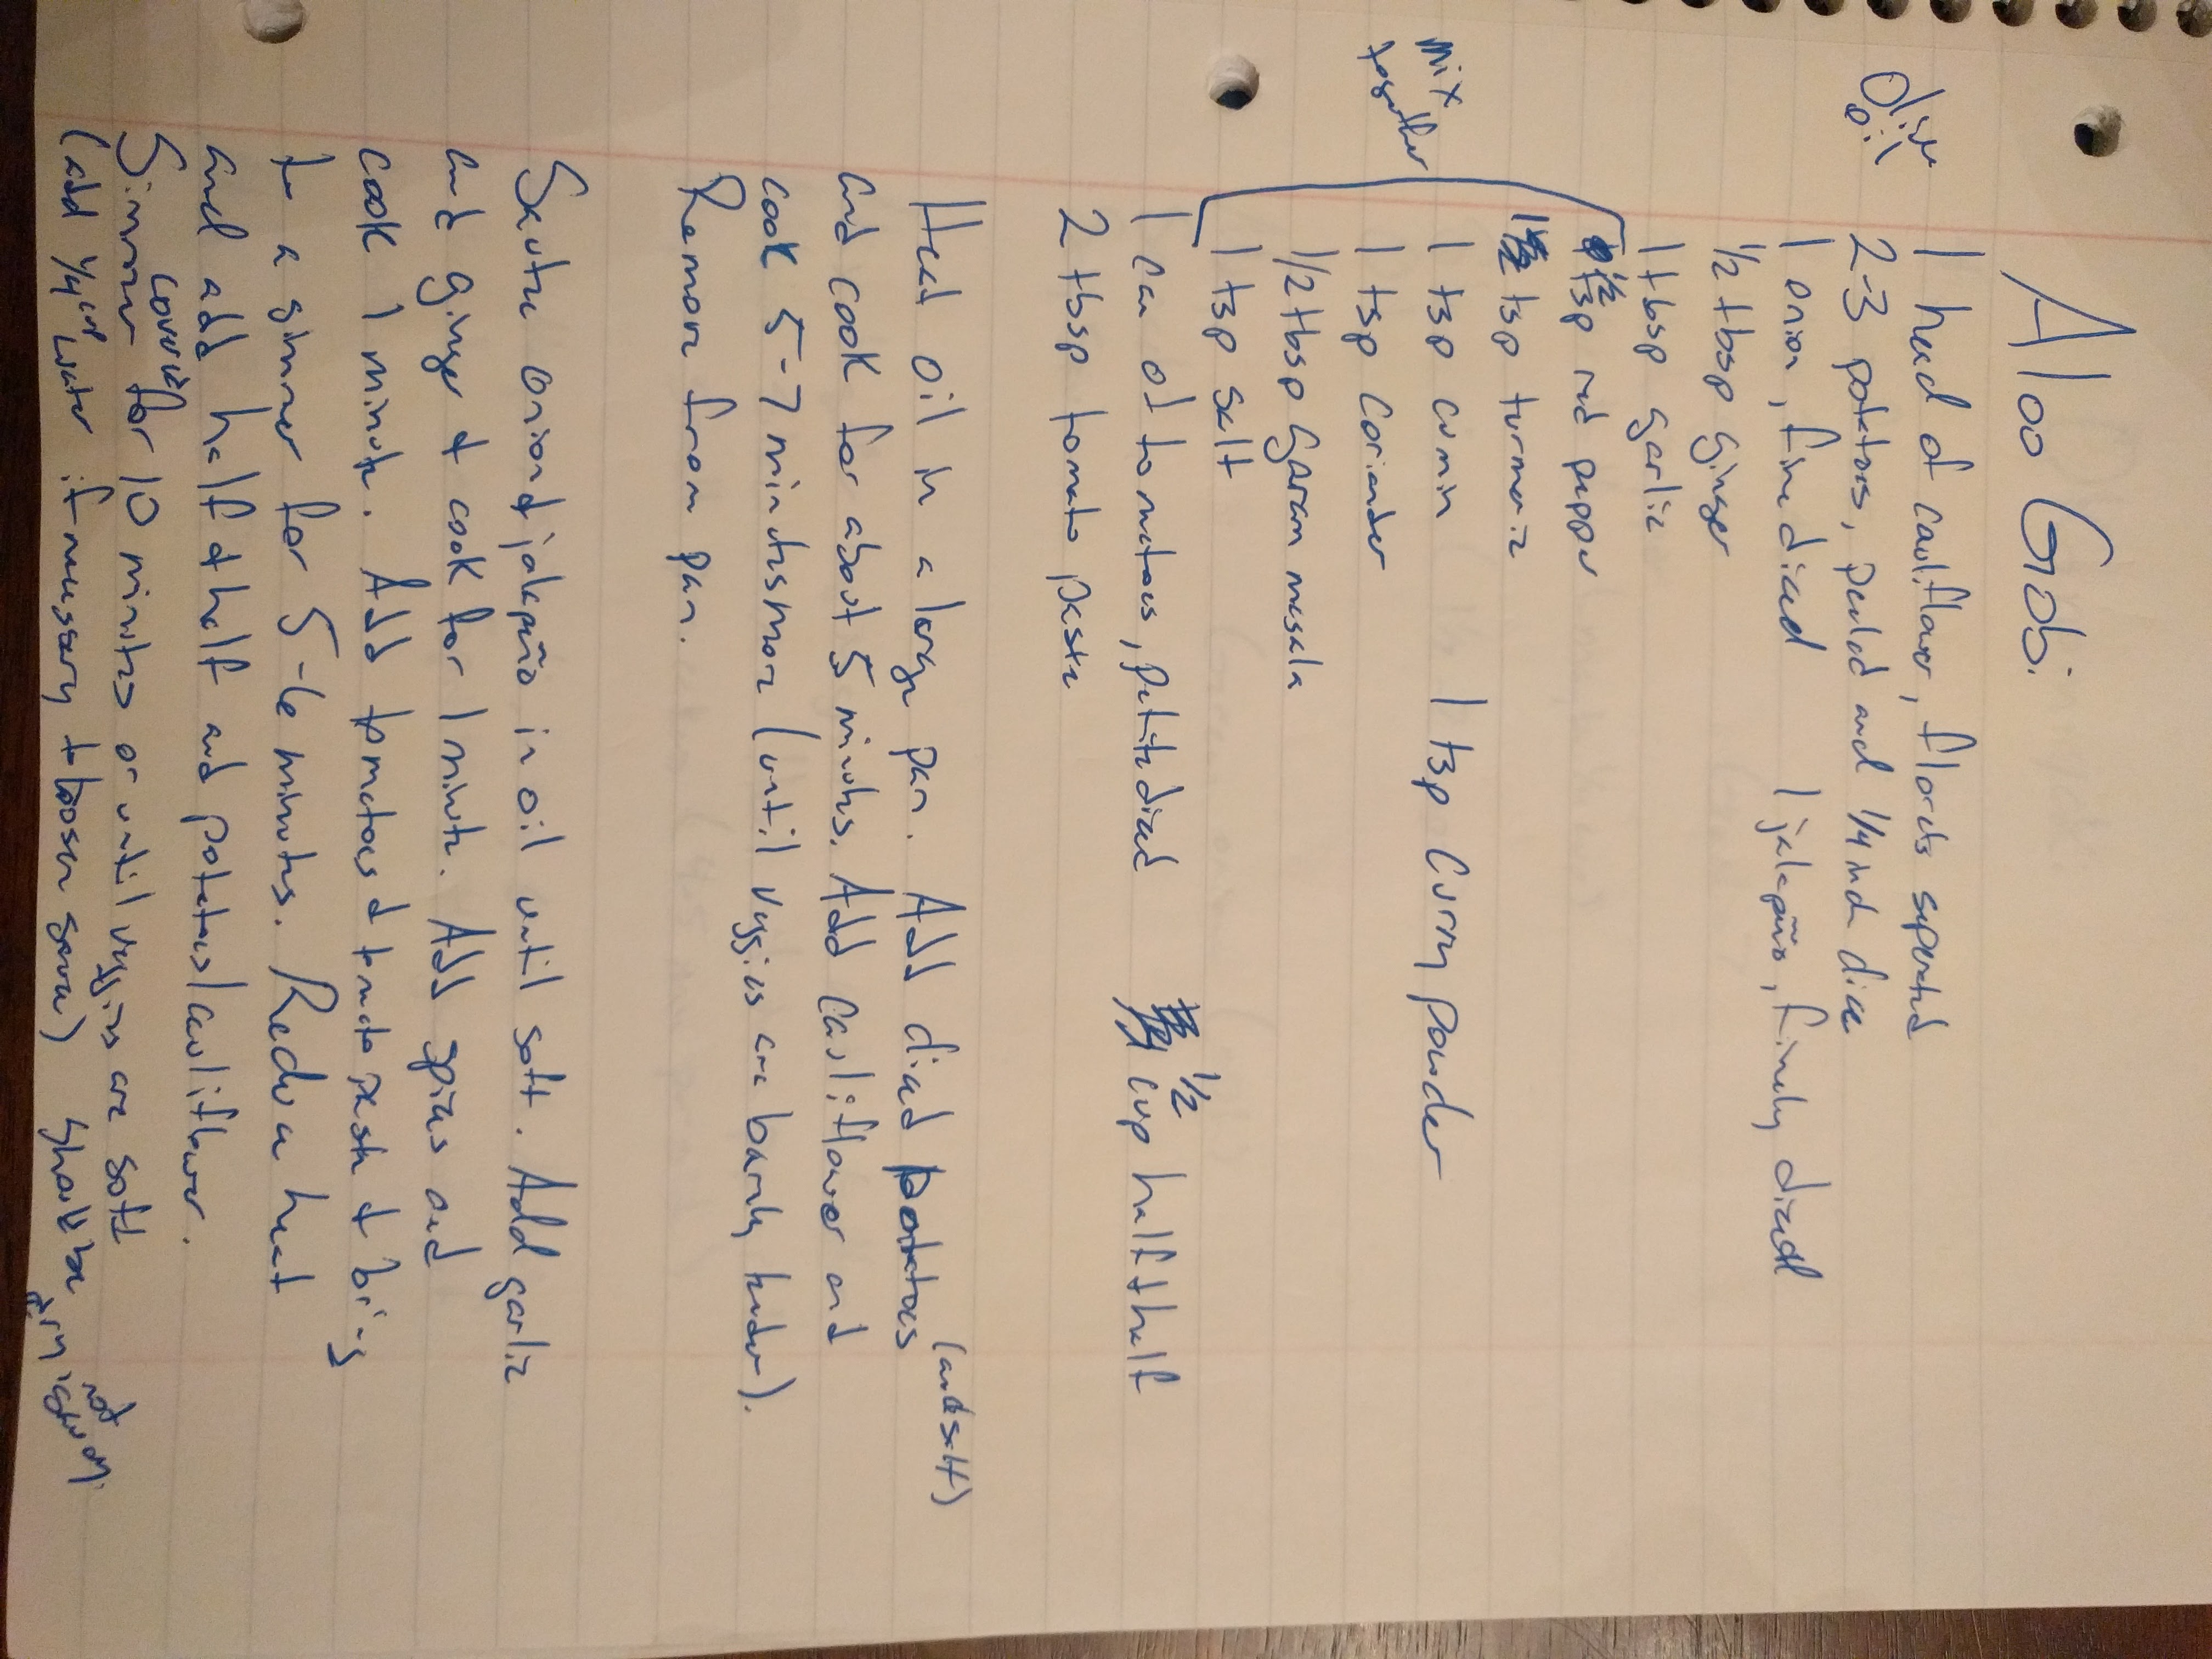 Aloo Gobi
Olive
Oil
1 head of cauliflower, florets seperated
2-3 potatoes, peeled and 1/4 inch dice
1 onion, fine diced 1 jalepeño, finely diced
1/2 tbsp ginger
1 tbsp garlic
mix
together
1/2 tsp red pepper
1 tsp turmeric
1 tsp cumin 1 tsp curry powder
1 tsp coriander
1/2 tbsp garam masala
1 tsp salt
1 can of tomatoes, petite diced 1/2 cup half + half
2 tbsp tomato paste
Heat oil in a large pan. Add diced potatoes (and salt)
and cook for about 5 minutes. Add cauliflower and
cook 5-7 minutes more (until veggies are barely tender).
Remove from pan.
Saute onion + jalepeño in oil until soft. Add garlic
and ginger + cook for 1 minute. Add spices and
cook 1 minute. Add tomatoes + tomato paste + bring
to a simmer for 5-6 minutes. Reduce heat
and add half + half and potatoes/cauliflower.
Simmer covered for 10 minutes or until veggies are soft
(add 1/4 cup water if necessary to loosen sauce) should be
not